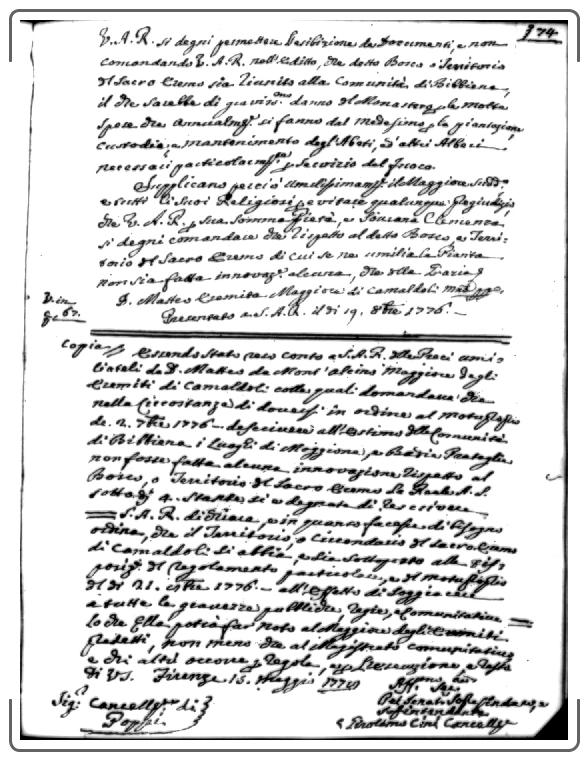 374
V. A. R. si degni permettere l'esibizione de Documenti, e non
comandando V. A. R. nell'Editto, che detto Bosco o Territorio
del Sacro Eremo sia riunito alla Comunità di Bibbiena,
il che sarebbe di graviss.mo danno del Monastero p. le molte
spese che annualm.te si fanno dal medesimo p. la piantazione,
custodia, e mantenimento degl'Abeti, ed altri Alberi
necessari particolarm.te p. servizio del fuoco.
Supplicano perciò umilissimam.te il Maggiore sudd.o
e tutti li suoi Religiosi p. evitare qualunque pregiudizio,
che V. A. R. p. sua somma Pietà, e Sovrana Clemenza
si degni comandare che rispetto al detto Bosco, e Terri-
torio del Sacro Eremo di cui se ne umilia la Pianta
non sia fatta innovaz.e alcuna, che della Grazia
D. Matteo Eremita Maggiore di Camaldoli
V. in
67.
Presentato a S. A. R. il dì 19. 8bre 1776.
Copia
Essendo stato reso conto a S. A. R. delle Preci umi-
liateli da D. Matteo da Mont'alcino Maggiore degli
Eremiti di Camaldoli colle quali domandava che
nella Circostanza di doversi in ordine al motuproprio
de 2. 7bre 1776 descrivere all'Estimo della Comunità
di Bibbiena i Luoghi di Moggiona, e Badia Prataglia
non fosse fatta alcuna innovazione rispetto al
Bosco, o Territorio del Sacro Eremo La Reale A. S.
sotto dì 4. Stante si è degnata di rescrivere
S. A. R. dichiara, e in quanto facesse di bisogno
ordina, che il Territorio, o Circondario del Sacro Eremo
di Camaldoli si abbia, e sia sottoposto alla dis-
posiz.e del regolamento particolare, e del motuproprio
del dì 21. 1776 all'effetto di soggiacere
a tutte le gravezze pubbliche, regie, e Comunitative
lo che Ella potrà far noto al Maggiore degli Eremiti
predetti, non meno che al Magistrato comunitativo
e chi altri occorre p. regola, e p. l'esecuzione, e resto
di VS. Firenze 15. Maggio
Sig.r Cancell.re di
Poppi
Aff.mo
Pel Senat.
Soprintendente
Girolamo Cini Cancell.e